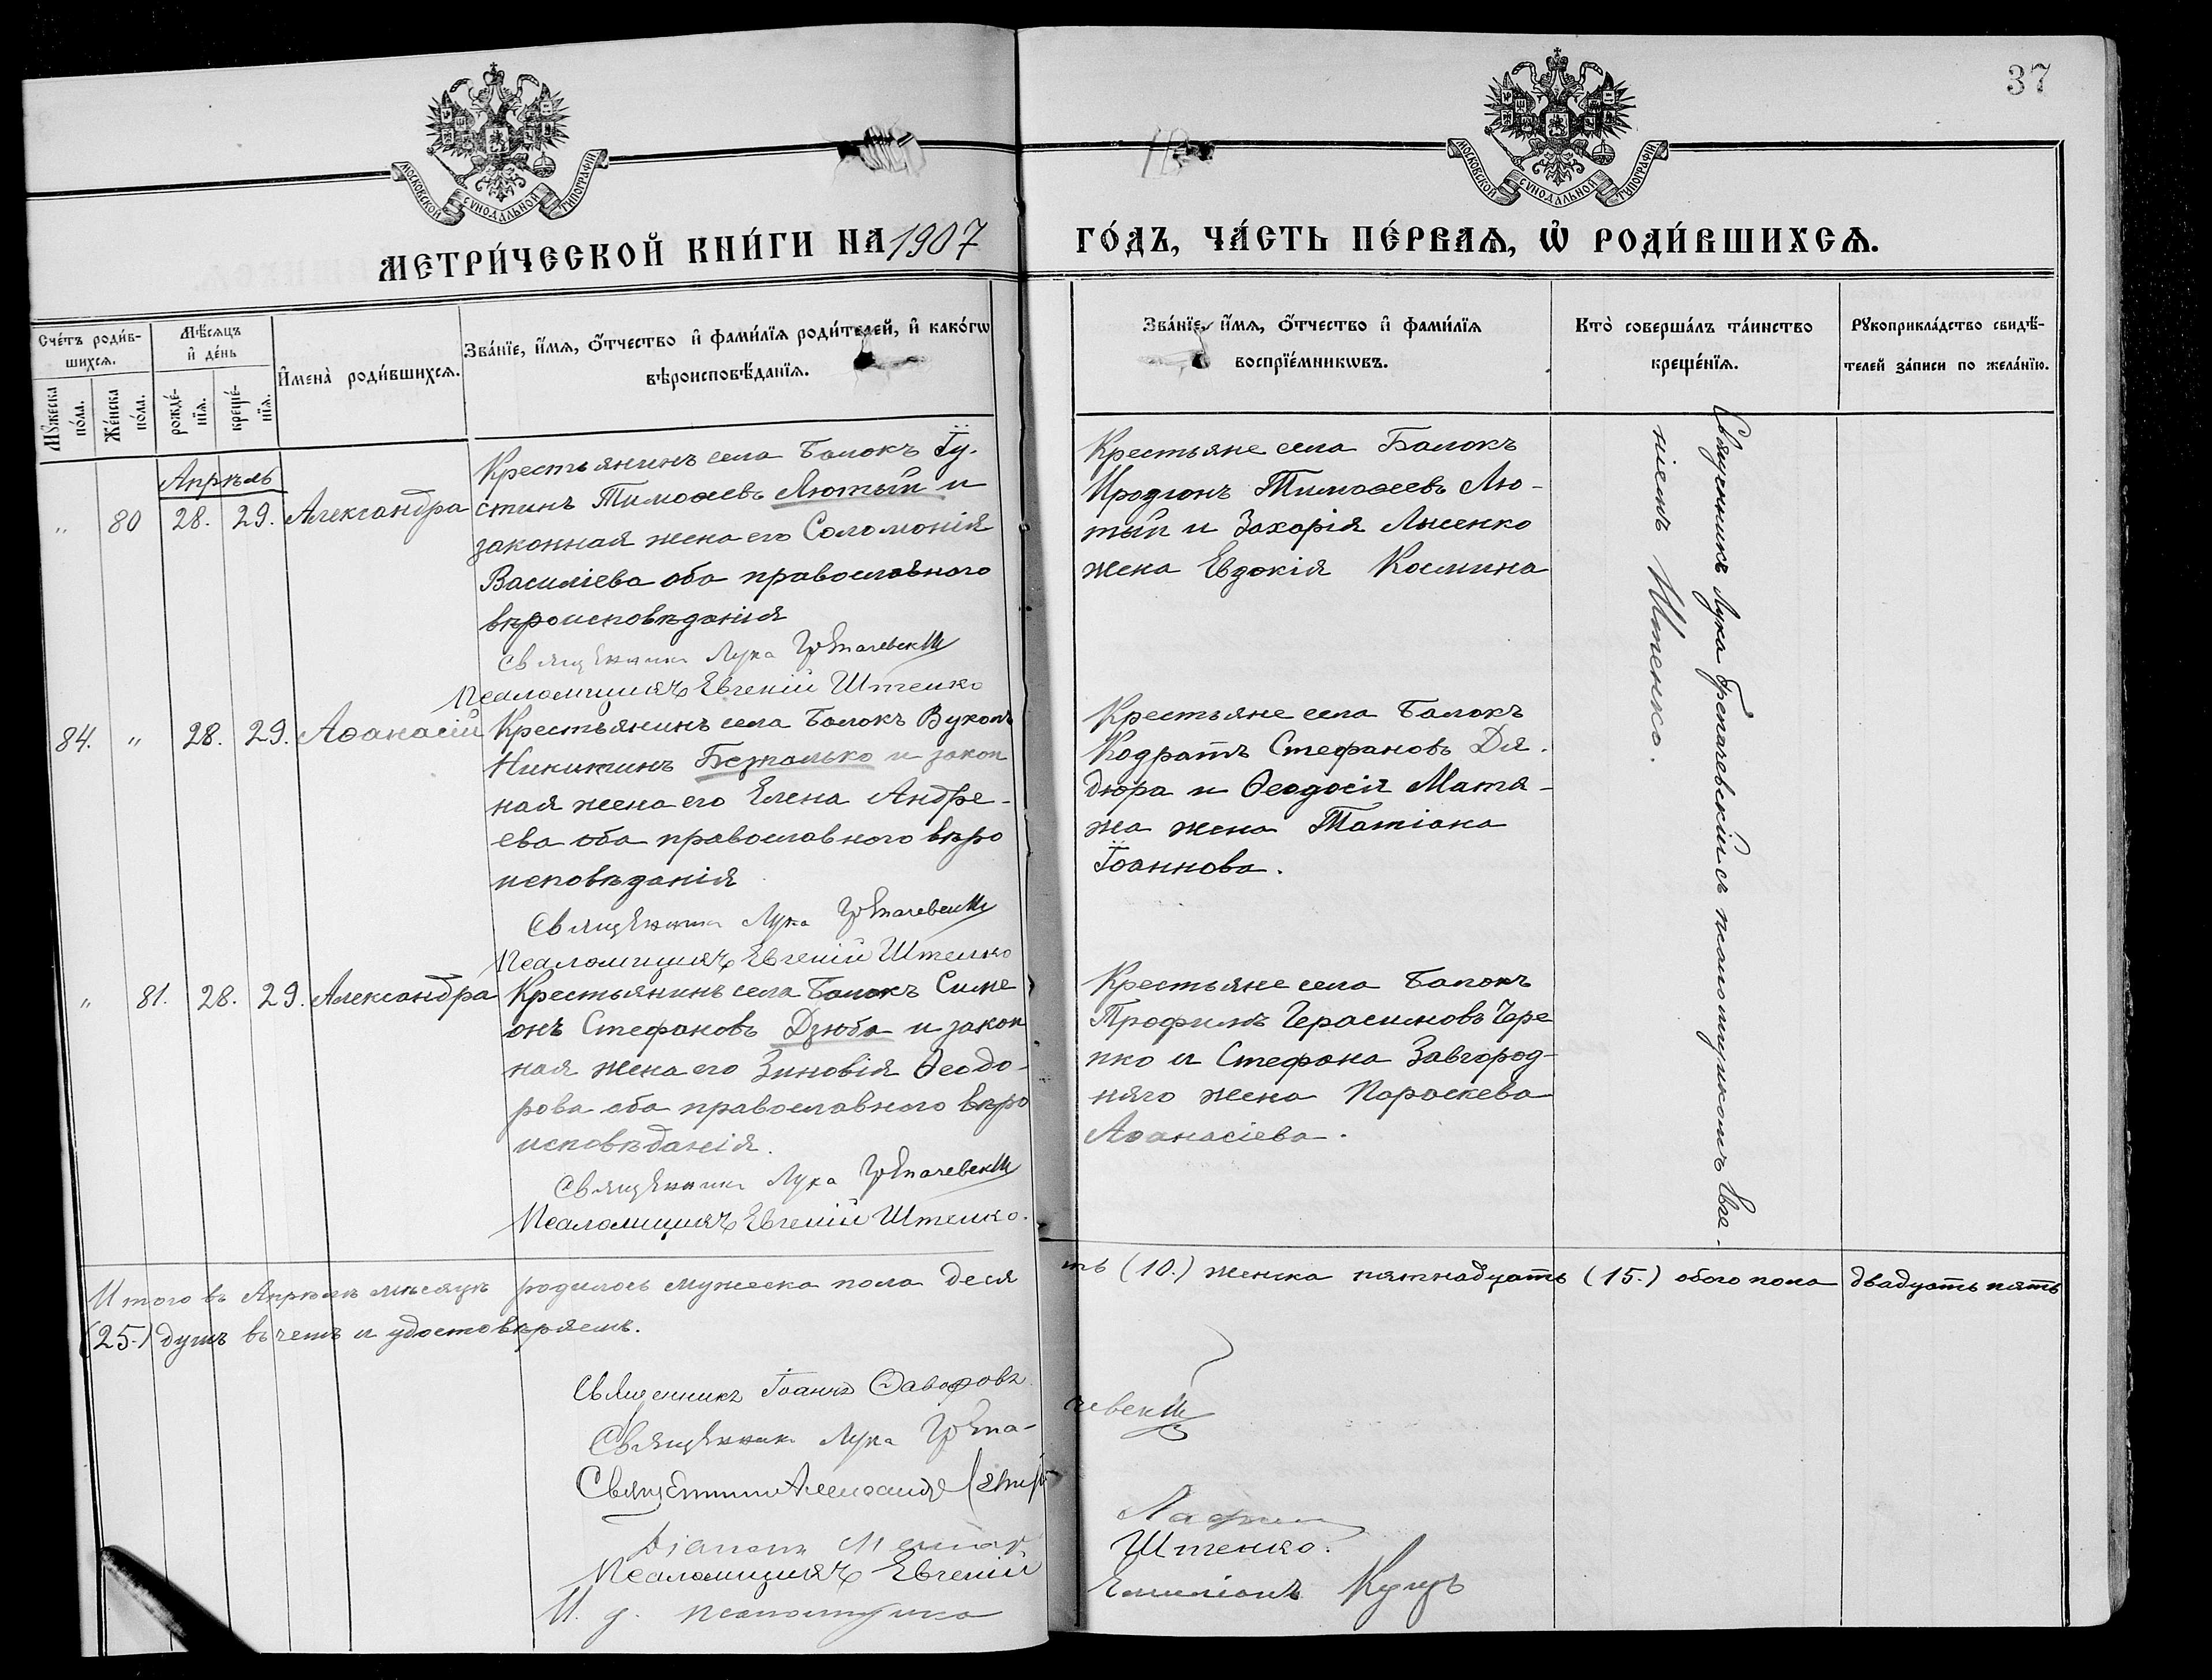 37
МОСКОВСКОЙ СѴНОДАЛЬНОЙ ТИПОГРАФІИ
МОСКОВСКОЙ СѴНОДАЛЬНОЙ ТИПОГРАФІИ
МЕТРИ́ЧЕСКОЙ КНИ́ГИ НА 1907 ГО́ДЪ, ЧА́СТЬ ПЕ́РВАѦ, Ѡ҆ РОДИ́ВШИХСѦ.
Сче́тъ роди́в-
шихсѧ.
Мꙋ́жеска по́ла.
Же́нска по́ла.
Мѣ́сѧцъ
и҆ де́нь
рожде́-
нїѧ.
креще́-
нїѧ.
И҆мена̀ роди́вшихсѧ.
Зва́нїе, и҆́мѧ, ѻ҆́тчество и҆ фами́лїѧ роди́телей, и҆ како́гѡ
вѣроисповѣ́данїѧ.
Зва́нїе, и҆́мѧ, ѻ҆́тчество и҆ фами́лїѧ
воспрїе́мникѡвъ.
Кто̀ соверша́лъ та́инство
креще́нїѧ.
Рꙋкоприкла́дство свидѣ́-
телей за́писи по жела́нїю.
Апрѣль
" 80 28. 29. Александра
Крестьянинъ села Балокъ Іу-
стинъ Тимоѳеевъ Лютый и
законная жена его Соломонія
Василіева оба православнаго
вѣроисповѣданія
Священникъ Лука Грепачевскій
Псаломщикъ Евгеній Штепко
Крестьяне села Балокъ
Иродіонъ Тимоѳеевъ Лю-
тый и Захарія Лысенко
жена Евдокія Космина
84. " 28. 29. Аѳанасій
Крестьянинъ села Балокъ Вуколъ
Никитинъ Безпалько и закон
ная жена его Елена Андре-
ева оба православнаго вѣро
исповѣданія
Священникъ Лука Грепачевскій
Псаломщикъ Евгеній Штепко
Крестьяне села Балокъ
Кодратъ Стефановъ Дя-
дюра и Ѳеодосія Матя-
жа жена Татіана
Іоаннова.
" 81. 28. 29. Александра
Крестьянинъ села Балокъ Симе
онъ Стефановъ Дзюба и закон
ная жена его Зиновія Ѳеодо-
рова оба православнаго вѣро
исповѣданія.
Священникъ Лука Грепачевскій
Псаломщикъ Евгеній Штепко.
Крестьяне села Балокъ
Трофимъ Герасимовъ Чере
пко и Стефана Завгород-
няго жена Параскева
Аѳанасіева.
Священникъ Лука Грепачевскій съ псаломщикомъ Евге-
ніемъ Штепко.
Итого въ Апрѣлѣ мѣсяцѣ родилось мужеска пола деся
ть (10.) женска пятнадцать (15.) обоего пола двадцать пять
(25.) душъ въ чемъ и удостовѣряемъ.
Священникъ Іоаннъ
Священникъ Лука Грепа-
чевскій
Священникъ Александръ
Діаконъ
Псаломщикъ Евгеній
Штепко.
И. д. псаломщика
Емиліанъ Куцъ